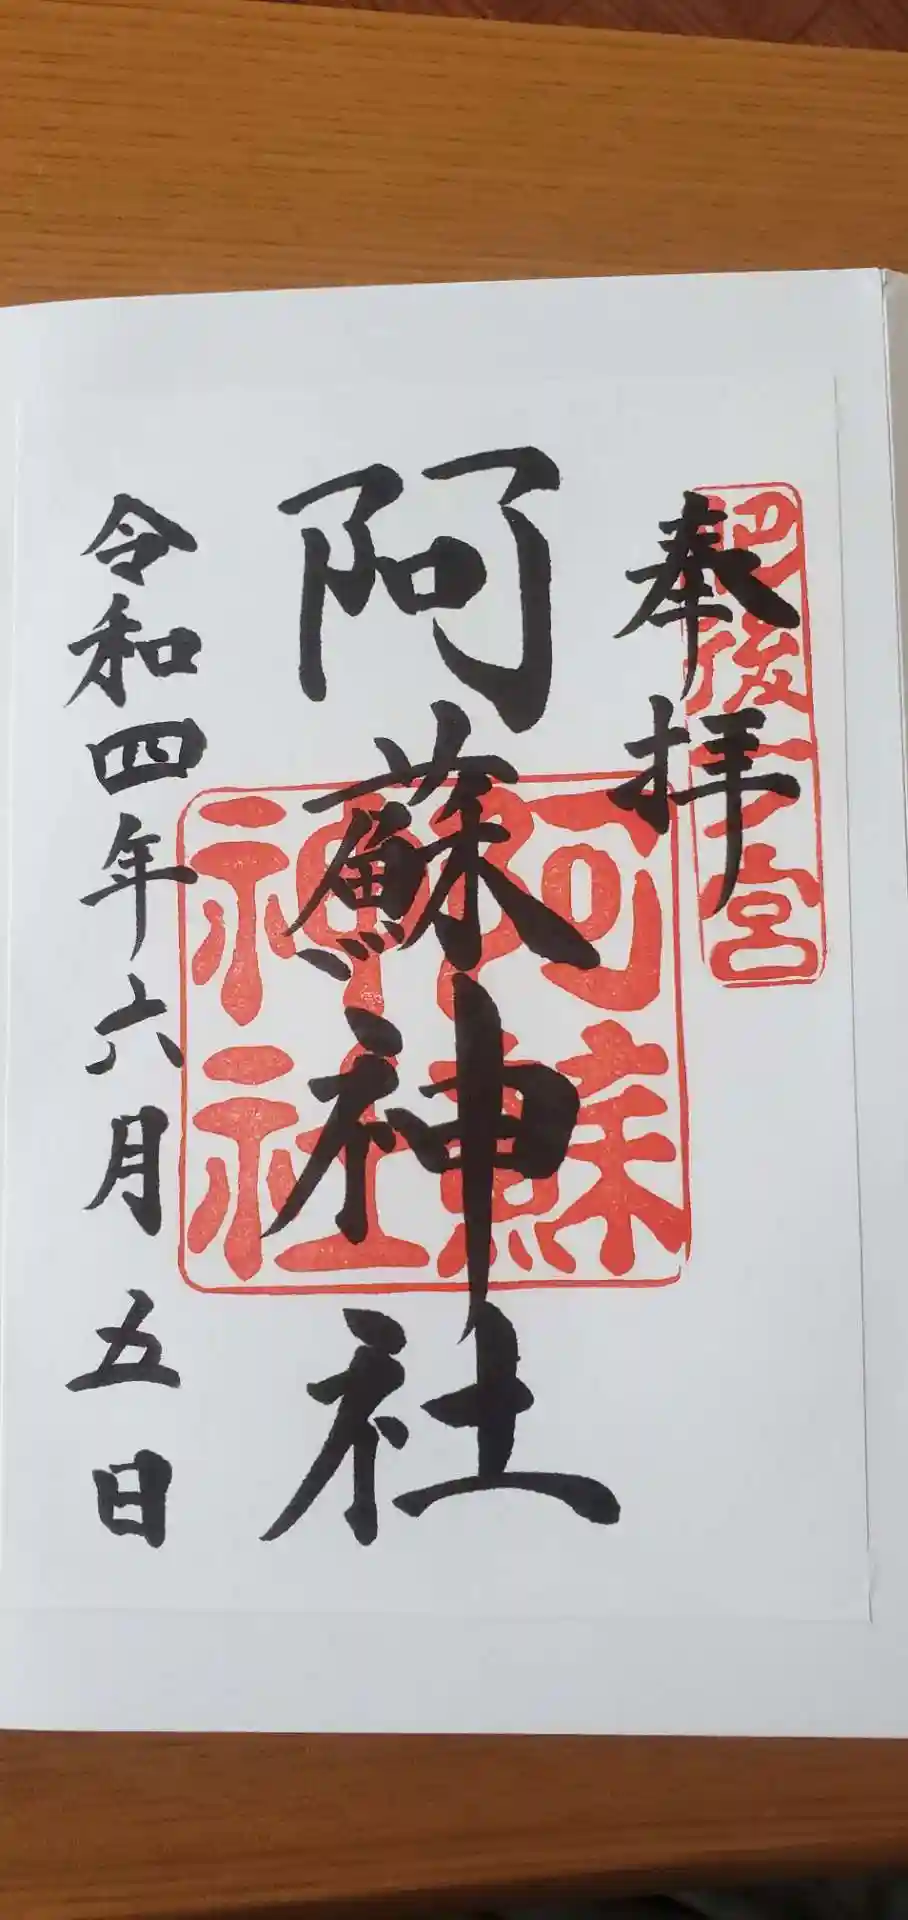 奉拝
肥後一宮
阿蘇神社
阿蘇神社
令和四年六月五日